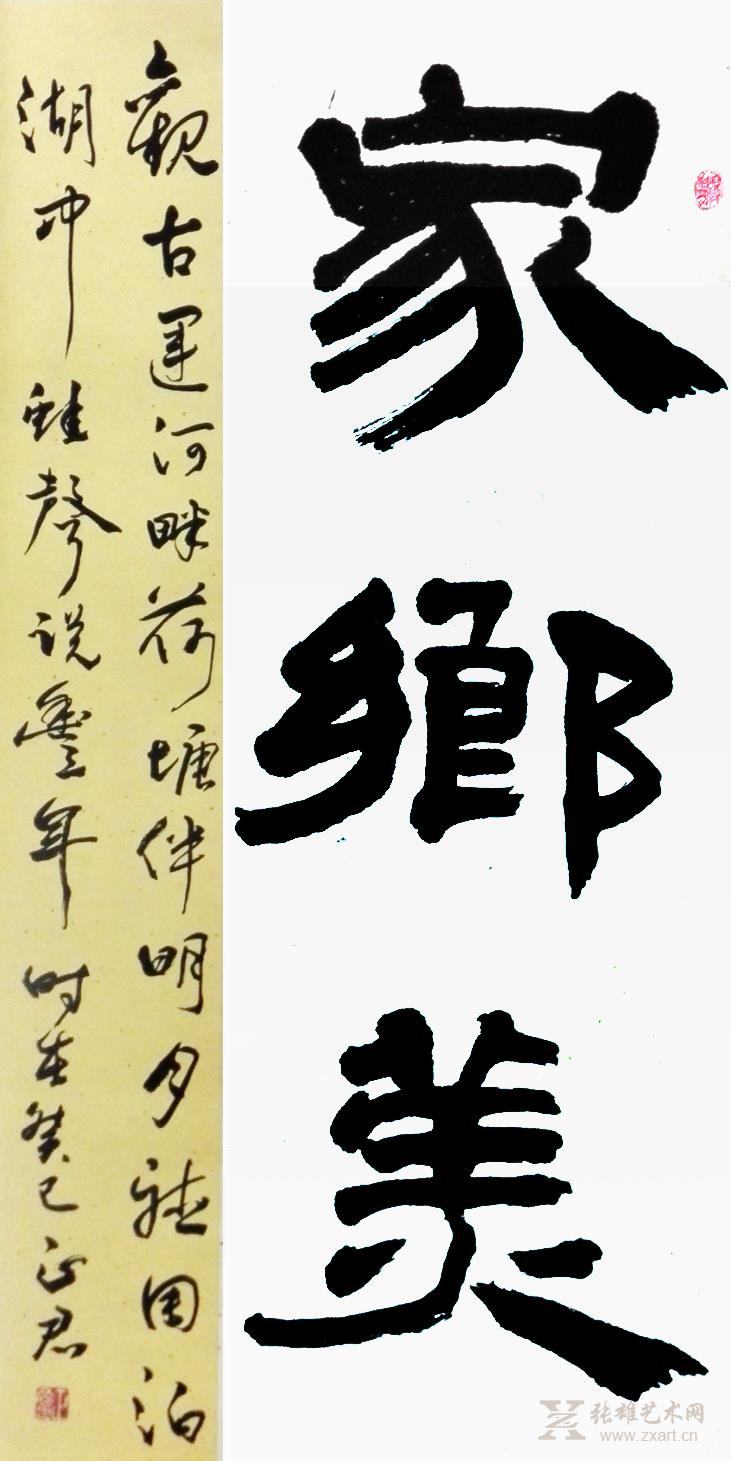 家鄉美
觀古運河畔荷塘伴明月聽團泊
湖中蛙聲说豐年 时在癸巳正君
张雄艺术网
www.zxart.cn